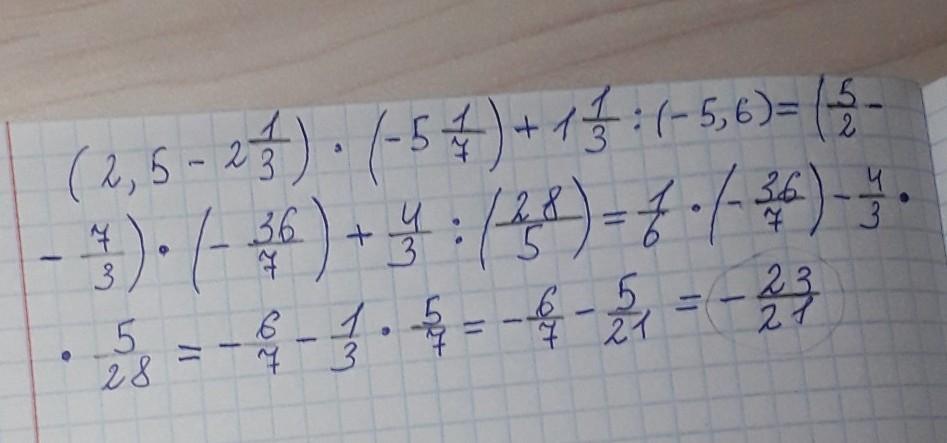 (2,5 - 2 1/3) · (-5 1/7) + 1 1/3 : (-5,6) = (5/2 -
- 7/3) · (- 36/7) + 4/3 : (28/5) = 1/6 · (- 36/7) - 4/3 ·
· 5/28 = - 6/7 - 1/3 · 5/7 = - 6/7 - 5/21 = - 23/21